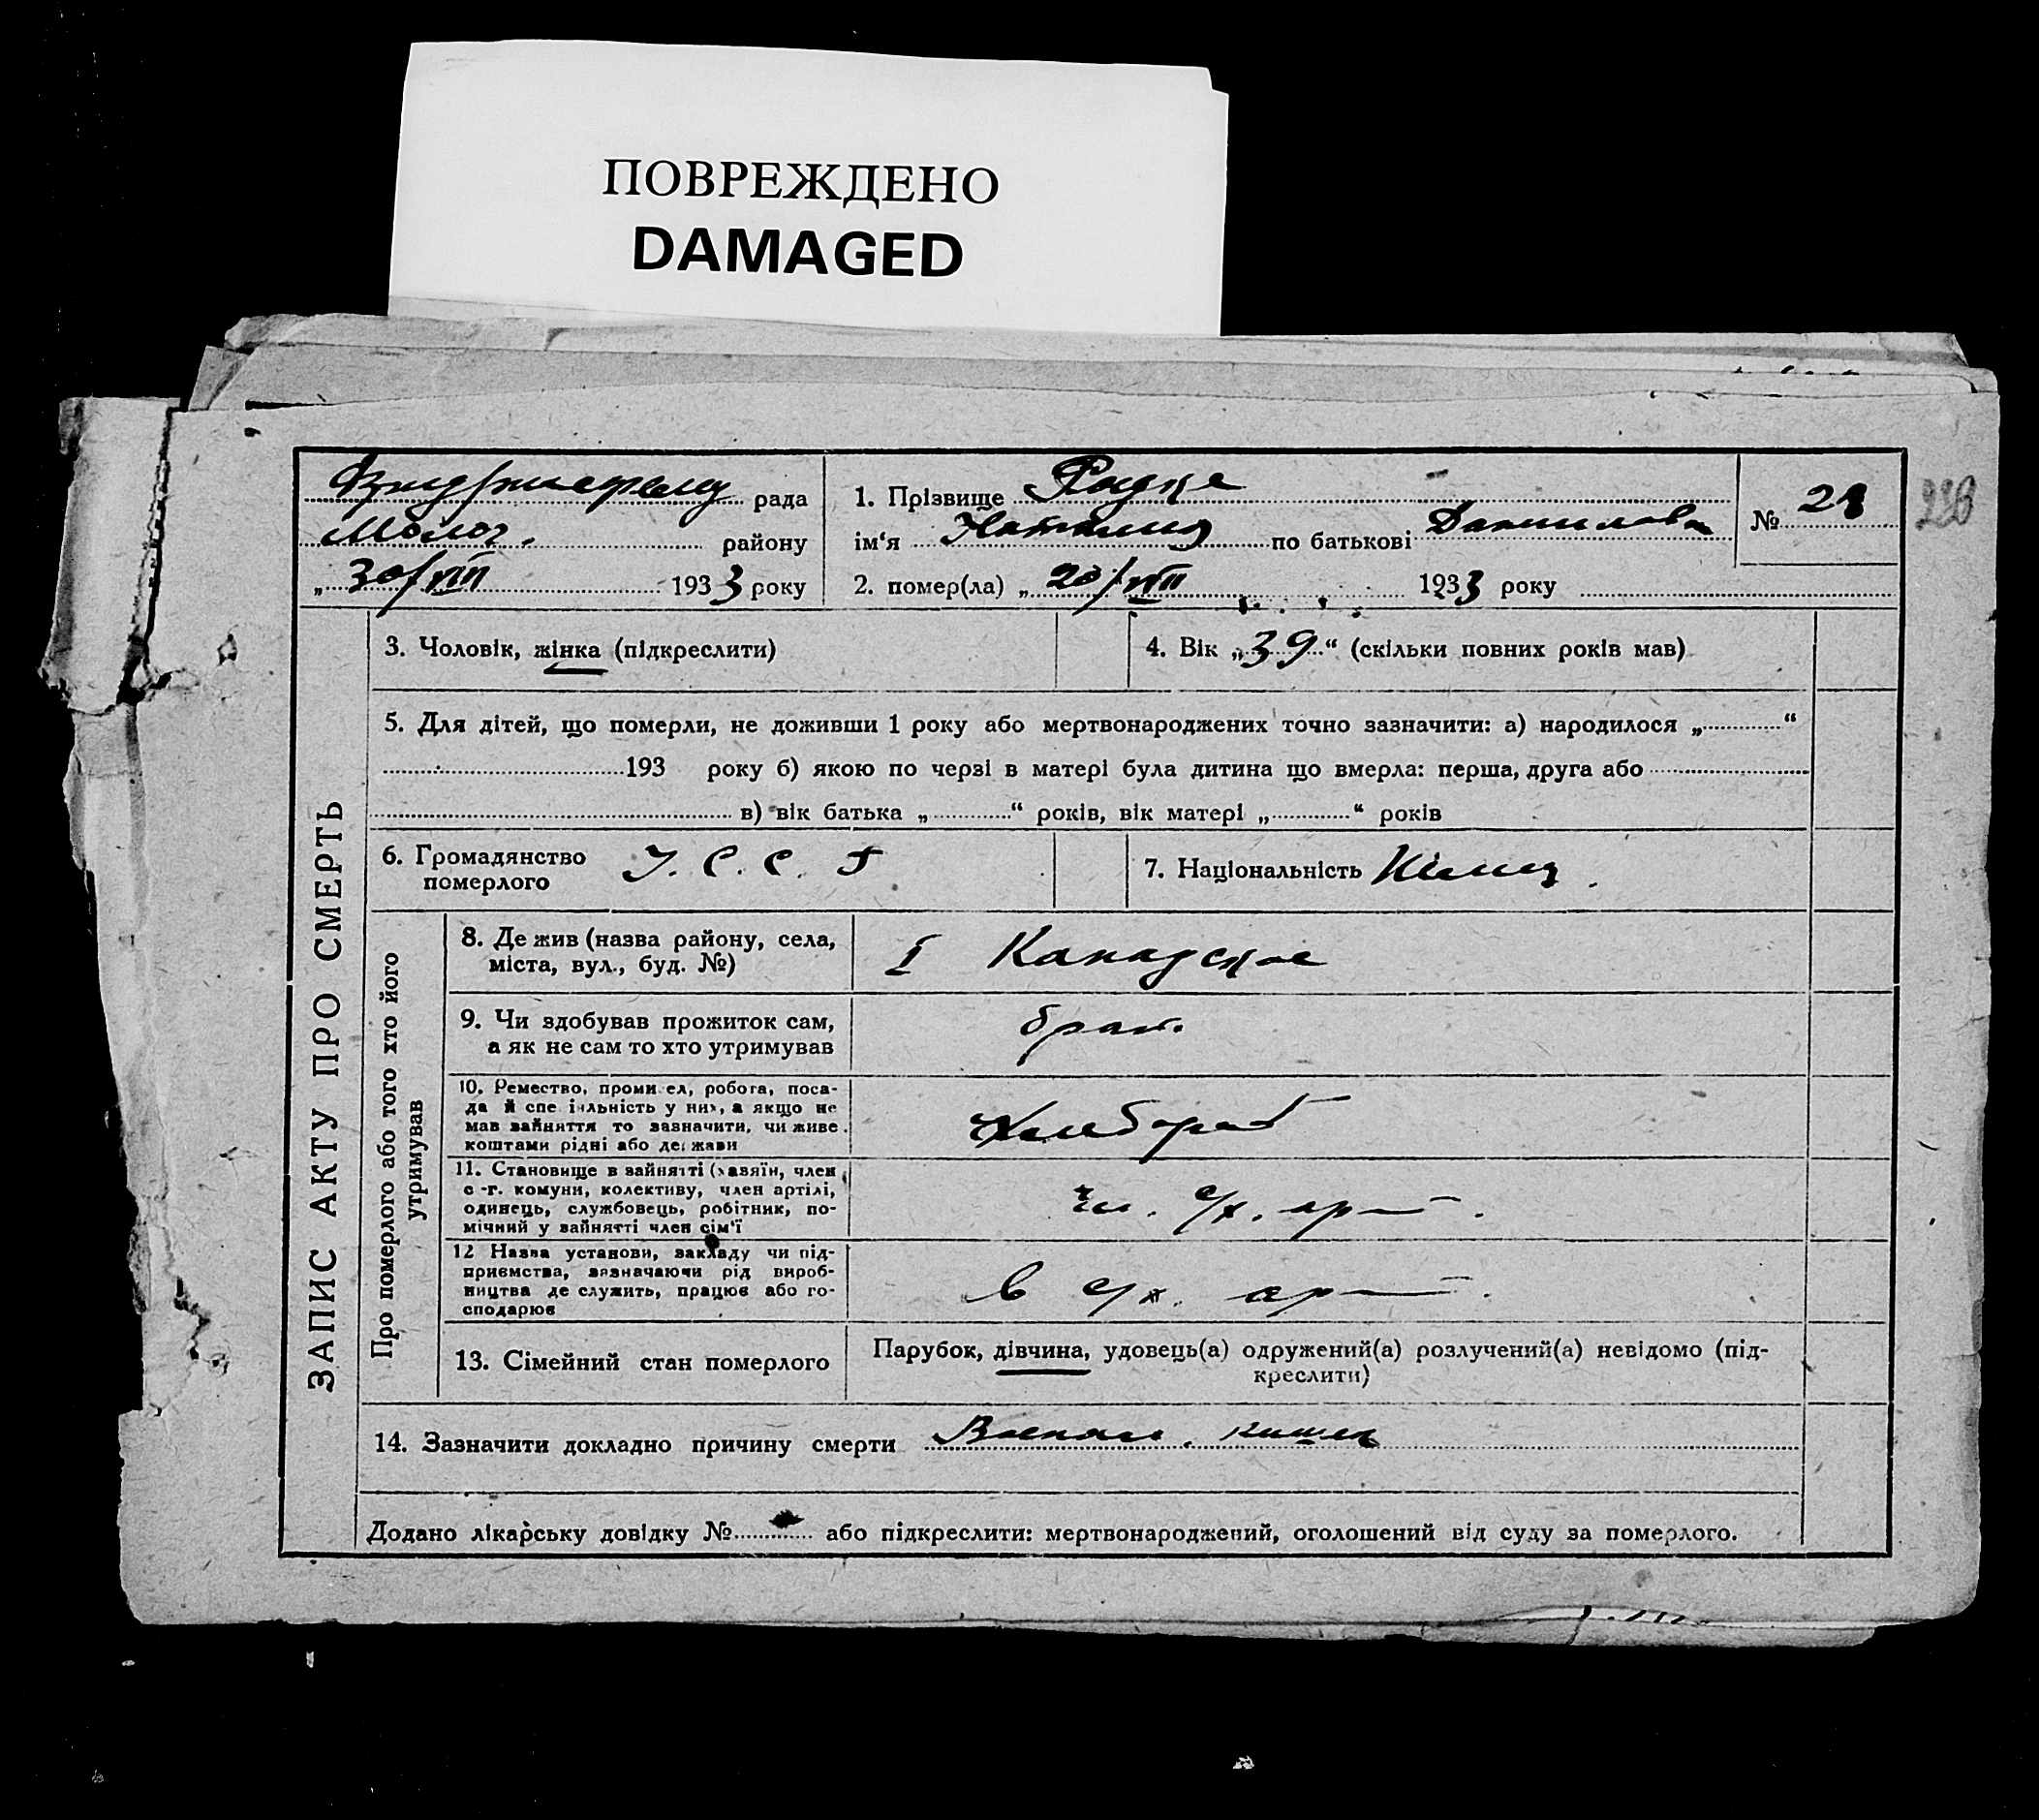 ПОВРЕЖДЕНО
DAMAGED
рада
Молоч. району
„ 30/VIII 1933 року
1. Прізвище Радке
ім‘я Наталия по батькові Даниловна
2. помер(ла) „ 20/VIII 1933 року
№ 28
228
ЗАПИС АКТУ ПРО СМЕРТЬ
3. Чоловік, жінка (підкреслити)
4. Вік „39“ (скільки повних років мав)
5. Для дітей, що померли, не доживши 1 року або мертвонароджених точно зазначити: а) народилося „ “
193 року б) якою по черзі в матері була дитина що вмерла: перша, друга або
в) вік батька „ “ років, вік матері „ “ років
6. Громадянство
померлого
7. Національність
Про померлого або того хто його
утримував
8. Де жив (назва району, села,
міста, вул., буд. №)
I Канадское
9. Чи здобував прожиток сам,
а як не сам то хто утримував
брат.
10. Ремество, промисел, робота, поса-
да й спеціяльність у них, а якщо не
мав зайняття то зазначити, чи живе
коштами рідні або держави
Хлебороб
11. Становище в зайнятті (хазяїн, член
с.-г. комуни, колективу, член артілі,
одинець, службовець, робітник, по-
мічний у зайнятті член сім‘ї
чл. с/х. арт.
12 Назва установи, закладу чи під-
приємства, зазначаючи рід вироб-
ництва де служить, працює або го-
сподарює
в с/х. арт.
13. Сімейний стан померлого
Парубок, дівчина, удовець(а) одружений(а) розлучений(а) невідомо (під-
креслити)
14. Зазначити докладно причину смерти Воспал. кишек
Додано лікарську довідку № або підкреслити: мертвонароджений, оголошений від суду за померлого.